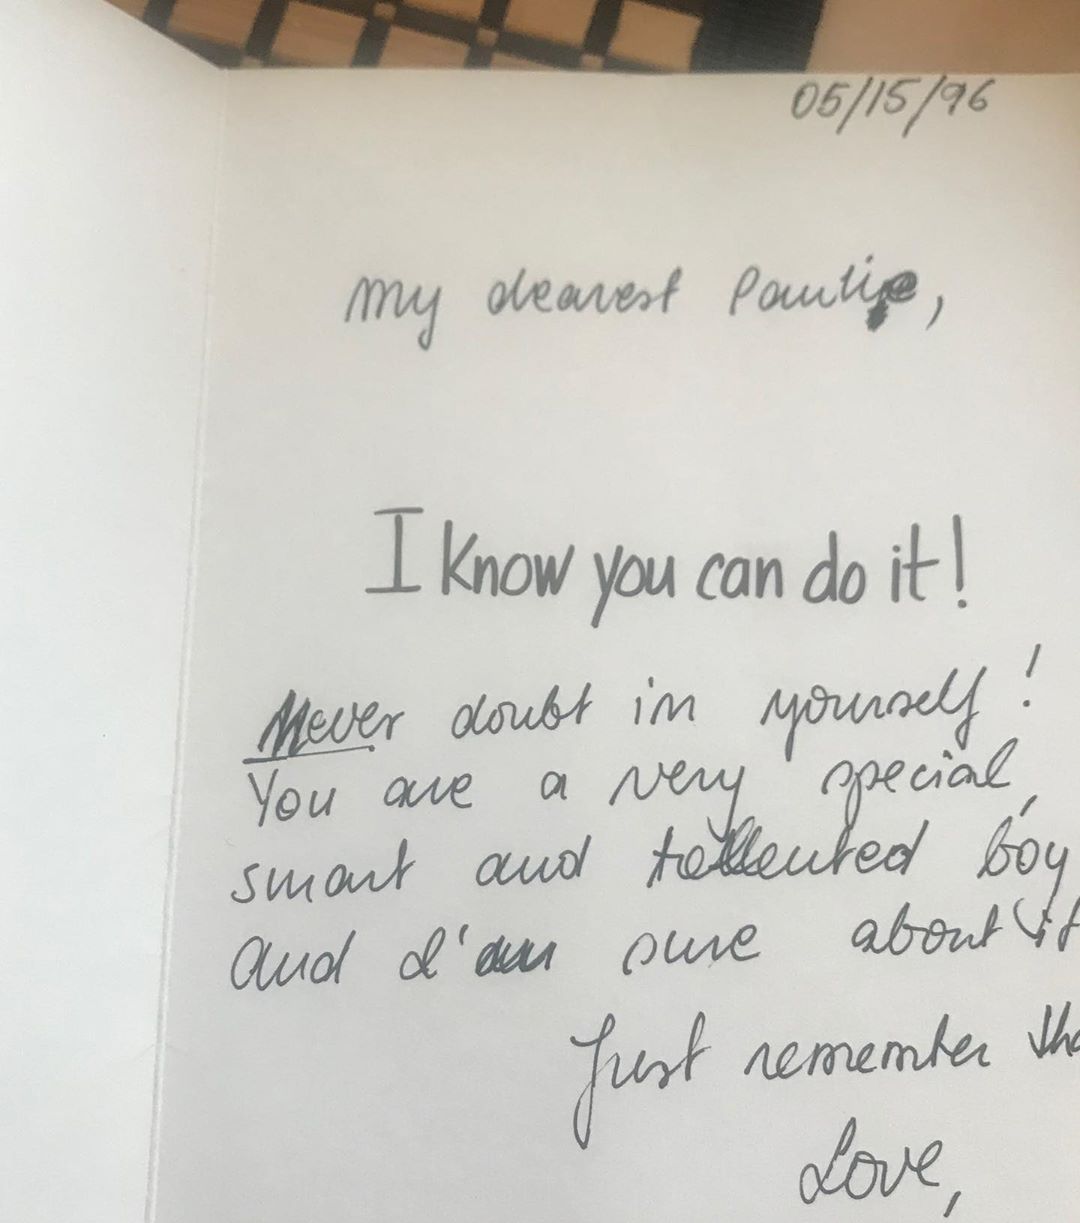 05/15/96
My dearest Paulie,
I know you can do it!
Never doubt in yourself!
You are a very special,
smart and tellented boy
and I'am sure about it
Just remember tha
Love,